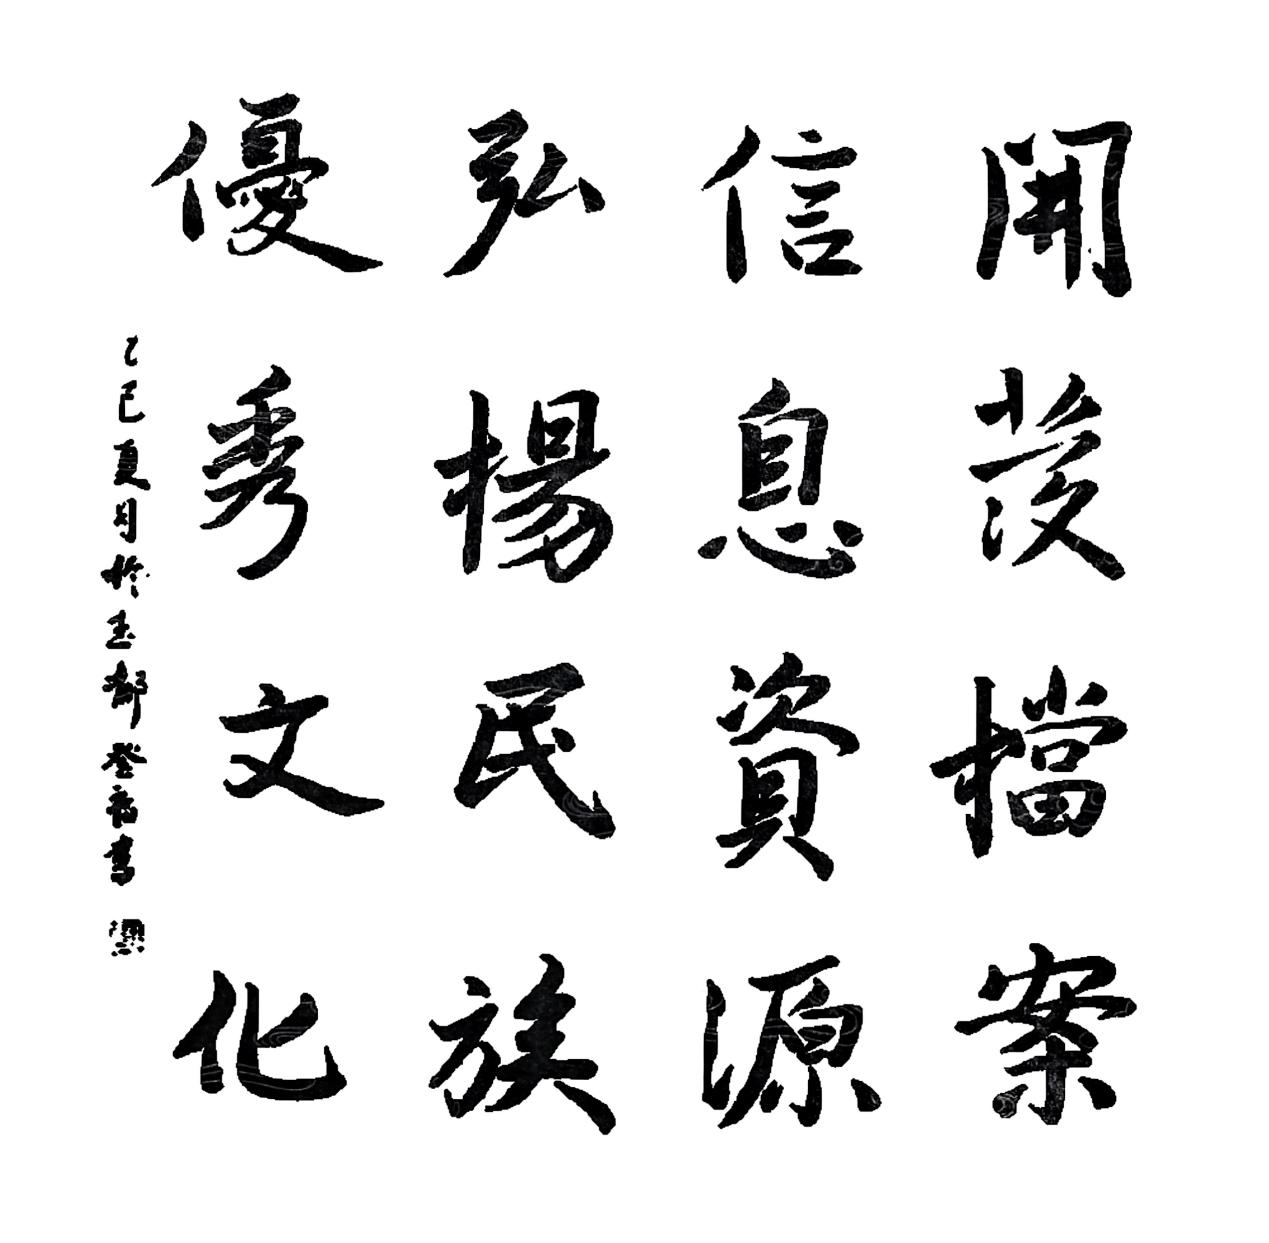 開發檔案
信息資源
弘揚民族
優秀文化
乙巳夏月於都登書